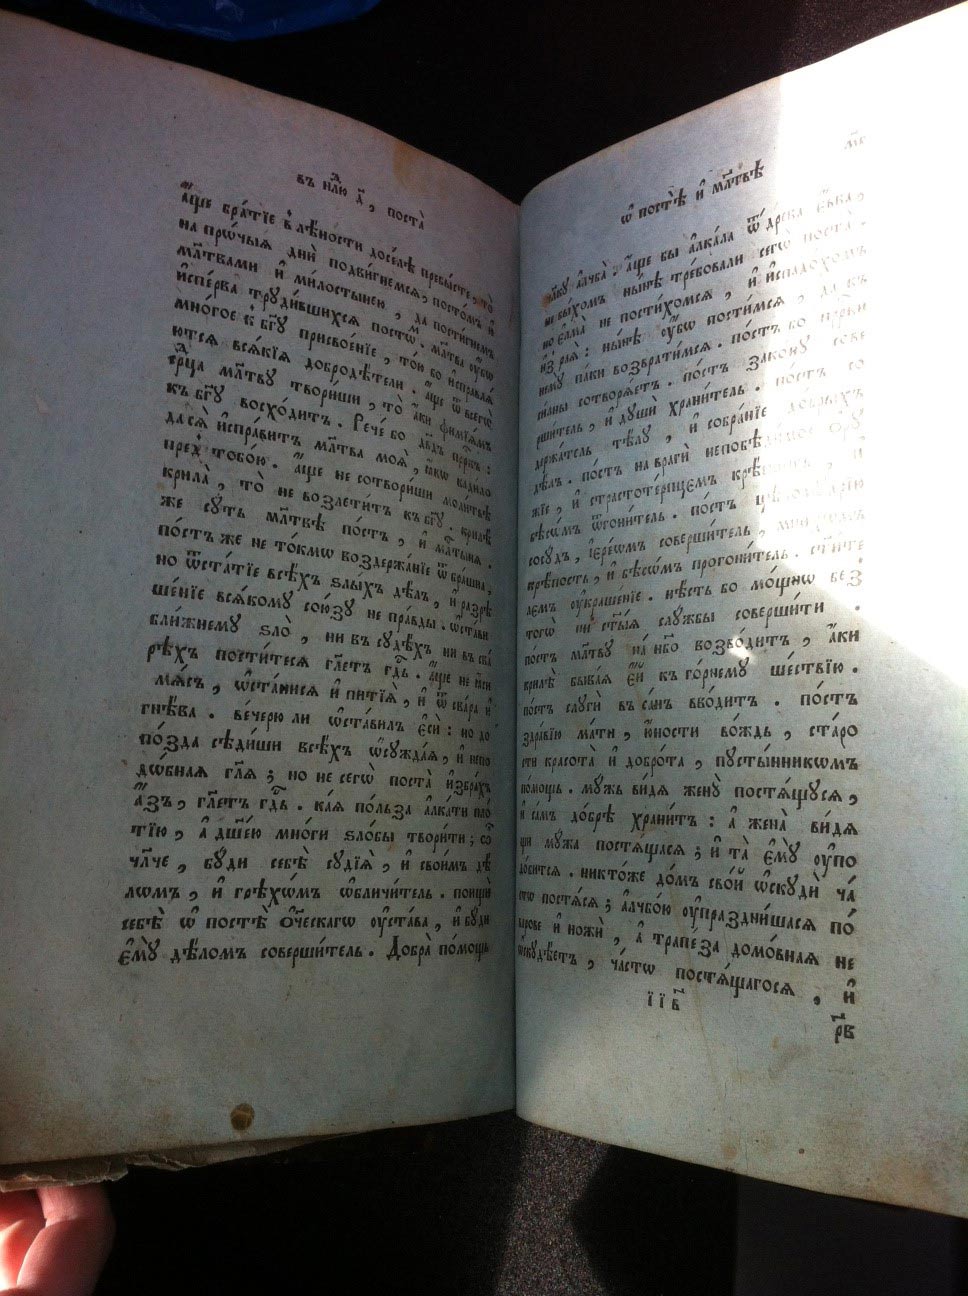 въ нлⷣю а҃, поста̀
а҆́ще бра́тїе в̾ лѣ́ности досе́лѣ пребы́сте, то̀
на про́чыѧ дни̑ подви́гнемсѧ, посто́мъ и҆
мл҃твами и҆ ми́лостынею, да пости́гнемъ
и҆спе́рва труди́вшихсѧ посто́мъ. мл҃тва ѹ҆́бѡ
мно́гое к̾ бг҃ѹ присвое́нїе, то́и бо и҆справлѧ́
ютсѧ всѧ́кїѧ добродѣ́тели. а҆́ще ѿ всегѡ̀
се́рⷣца мл҃твѹ твори́ши, то̀ а҆́ки ѳимїѧ́мъ
къ бг҃ѹ восхо́дитъ. Рече́ бо дв҃дъ пррⷪ҇къ:
да сѧ̀ и҆спра́витъ мл҃тва моѧ̀, ꙗ҆́кѡ кади́ло
пред̾ тобо́ю. а҆́ще не сотвори́ши моли́твѣ
крила̀, то̀ не возлети́тъ къ бг҃ѹ. кри́лѣ
же сѹ́ть мл҃твѣ по́стъ, и҆ мл҃тынѧ.
по́стъ же не то́кмѡ воздержа́нїе ѿ бра́шна,
но ѿста́тїе всѣ́хъ ѕлы́хъ дѣ́лъ, и҆ разрѣ
ше́нїе всѧ́комѹ сою́зѹ непра́вды. ѡ҆ста́ви
бли́жнемѹ ѕло̀, ни въ сѹдѣ́хъ ни въ сва́
рѣхъ пости́тесѧ гл҃етъ гдⷭ҇ь. а҆́ще не ꙗ҆си̑
мѧ́съ, ѡ҆ста́нисѧ и҆ питїѧ̀, и҆ ѿ сва́ра и҆
гнѣ́ва. ве́черю ли ѡ҆ста́вилъ є҆сѝ: но до
по́зда сѣди́ши всѣ́хъ ѡ҆сѹжда́ѧ, и҆ непо
до́бнаѧ гл҃ѧ; но не сегѡ̀ поста̀ и҆збра́хъ
а҆́зъ, гл҃етъ гдⷭ҇ь. ка́ѧ по́льза а҆лка́ти пло́
тїю, а҆ дш҃е́ю мно́ги ѕло́бы твори́ти; ѽ
чл҃че, бѹ́ди себѣ̀ сѹдїѧ̀, и҆ свои́мъ дѣ́
ломъ, и҆ грѣхо́мъ ѡ҆бличи́тель. поищѝ
себѣ̀ ѡ҆ по́стѣ ѻ҆ч҃ескагѡ ѹ҆ста́ва, и҆ бѹ́ди
є҆мѹ̀ дѣ́ломъ соверши́тель. Добра̀ по́мощь
мв҃
ѡ҆ по́стѣ и҆ мл҃твѣ
а҆лчба̀: а҆́ще бы а҆лка́ла ѿ дре́ва є҆́ѵва,
не бы́хомъ ны́нѣ тре́бовали сегѡ̀ поста̀.
но є҆лма̀ не пости́хомсѧ, и҆ и҆спадо́хомъ
и҆з̾ раѧ̀: ны́нѣ ѹ҆́бѡ пости́мсѧ, да въ
него́ паки возврати́мсѧ. по́стъ бо
сотворѧ́етъ. по́стъ зако́нѹ сове
рши́тель, и҆ дѹшѝ храни́тель. по́стъ со
держа́тель тѣ́лѹ, и҆ собра́нїе до́брыхъ
дѣ́лъ. по́стъ на враги̑ непобѣди́мое ѻ҆рѹ́
жїе, и҆ страстоте́рпцемъ крѣ́пость, и҆
бѣсѡ́мъ ѿгони́тель. по́стъ цѣломѹ́дрїю
сосѹ́дъ, і҆ере́ѡмъ соверши́тель,
крѣ́пость, и҆ бѣсѡ́мъ прогони́тель. ст҃и́те
лємъ ѹ҆краше́нїе. нѣ́сть бо мо́щнѡ без̾
тогѡ̀ ни ст҃ы́ѧ слѹ́жбы соверши́ти.
по́стъ мл҃твѹ на нб҃о возво́дитъ, а҆́ки
кри́лѣ быва́ѧ є҆́й къ го́рнемѹ ше́ствїю.
по́стъ слѹги̑ въ са́нъ вво́дитъ. по́стъ
здра́вїю ма́ти, ю҆́ности во́ждь, ста́ро
сти красота̀ и҆ добро́та, пѹсты́нникѡмъ
по́мощь. мѹ́жъ ви́дѧ женѹ̀ постѧ́щѹсѧ,
и҆ са́мъ до́брѣ храни́тъ: а҆ жена̀ ви́дѧ
щи мѹ́жа постѧ́щасѧ; и҆ та̀ є҆мѹ̀ ѹ҆по
до́битсѧ. никто́же до́мъ сво́й ѡ҆скѹдѝ ча́
стѡ постѧ́сѧ; а҆лчбо́ю ѹ҆праздни́шасѧ по́
варове и҆ ножѝ, а҆ трапе́за домо́внаѧ не
ѡ҆скѹдѣ́етъ, ча́стѡ постѧ́щагосѧ, и҆
ї ї в҃
рв҃